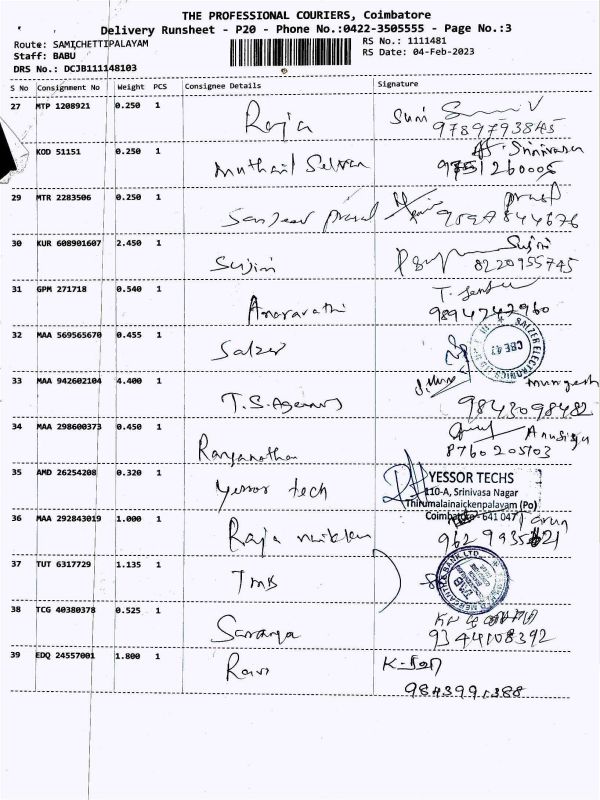 THE PROFESSIONAL COURIERS, Coimbatore
Delivery Runsheet - P20 - Phone No.:0422-3505555 - Page No.:3
Route: SAMICHETTIPALAYAM
RS No.: 1111481
Staff: BABU
RS Date: 04-Feb-2023
DRS No.: DCJB111148103
S No Consignment No Weight PCS Consignee Details Signature
27 MTP 1208921 0.250 1 Raja Suni
9789793845
KOD 51151 0.250 1 Muthail Selvan Srinivasan
29 MTR 2283506 0.250 1 Sanjeev prasad
30 KUR 608901607 2.450 1 Sujini Sujini
8220955745
31 GPM 271718 0.540 1 Amaravathi
9894742960
32 MAA 569565670 0.455 1 Salzer
SALZER ELECTRONICS
CBE 47
33 MAA 942602104 4.400 1 T.S. Agencies murugesh
9843098482
34 MAA 298600373 0.450 1 Ranganathan
8760205103
35 AMD 26254208 0.320 1 Yessor tech
YESSOR TECHS
110-A, Srinivasa Nagar
Thirumalainaickenpalayam (Po)
Coimbatore - 641 047
36 MAA 292843019 1.000 1 Raja
37 TUT 6317729 1.135 1 TMB
38 TCG 40380378 0.525 1 Saranya
9344108392
39 EDQ 24557001 1.800 1 Ravi
9843991388